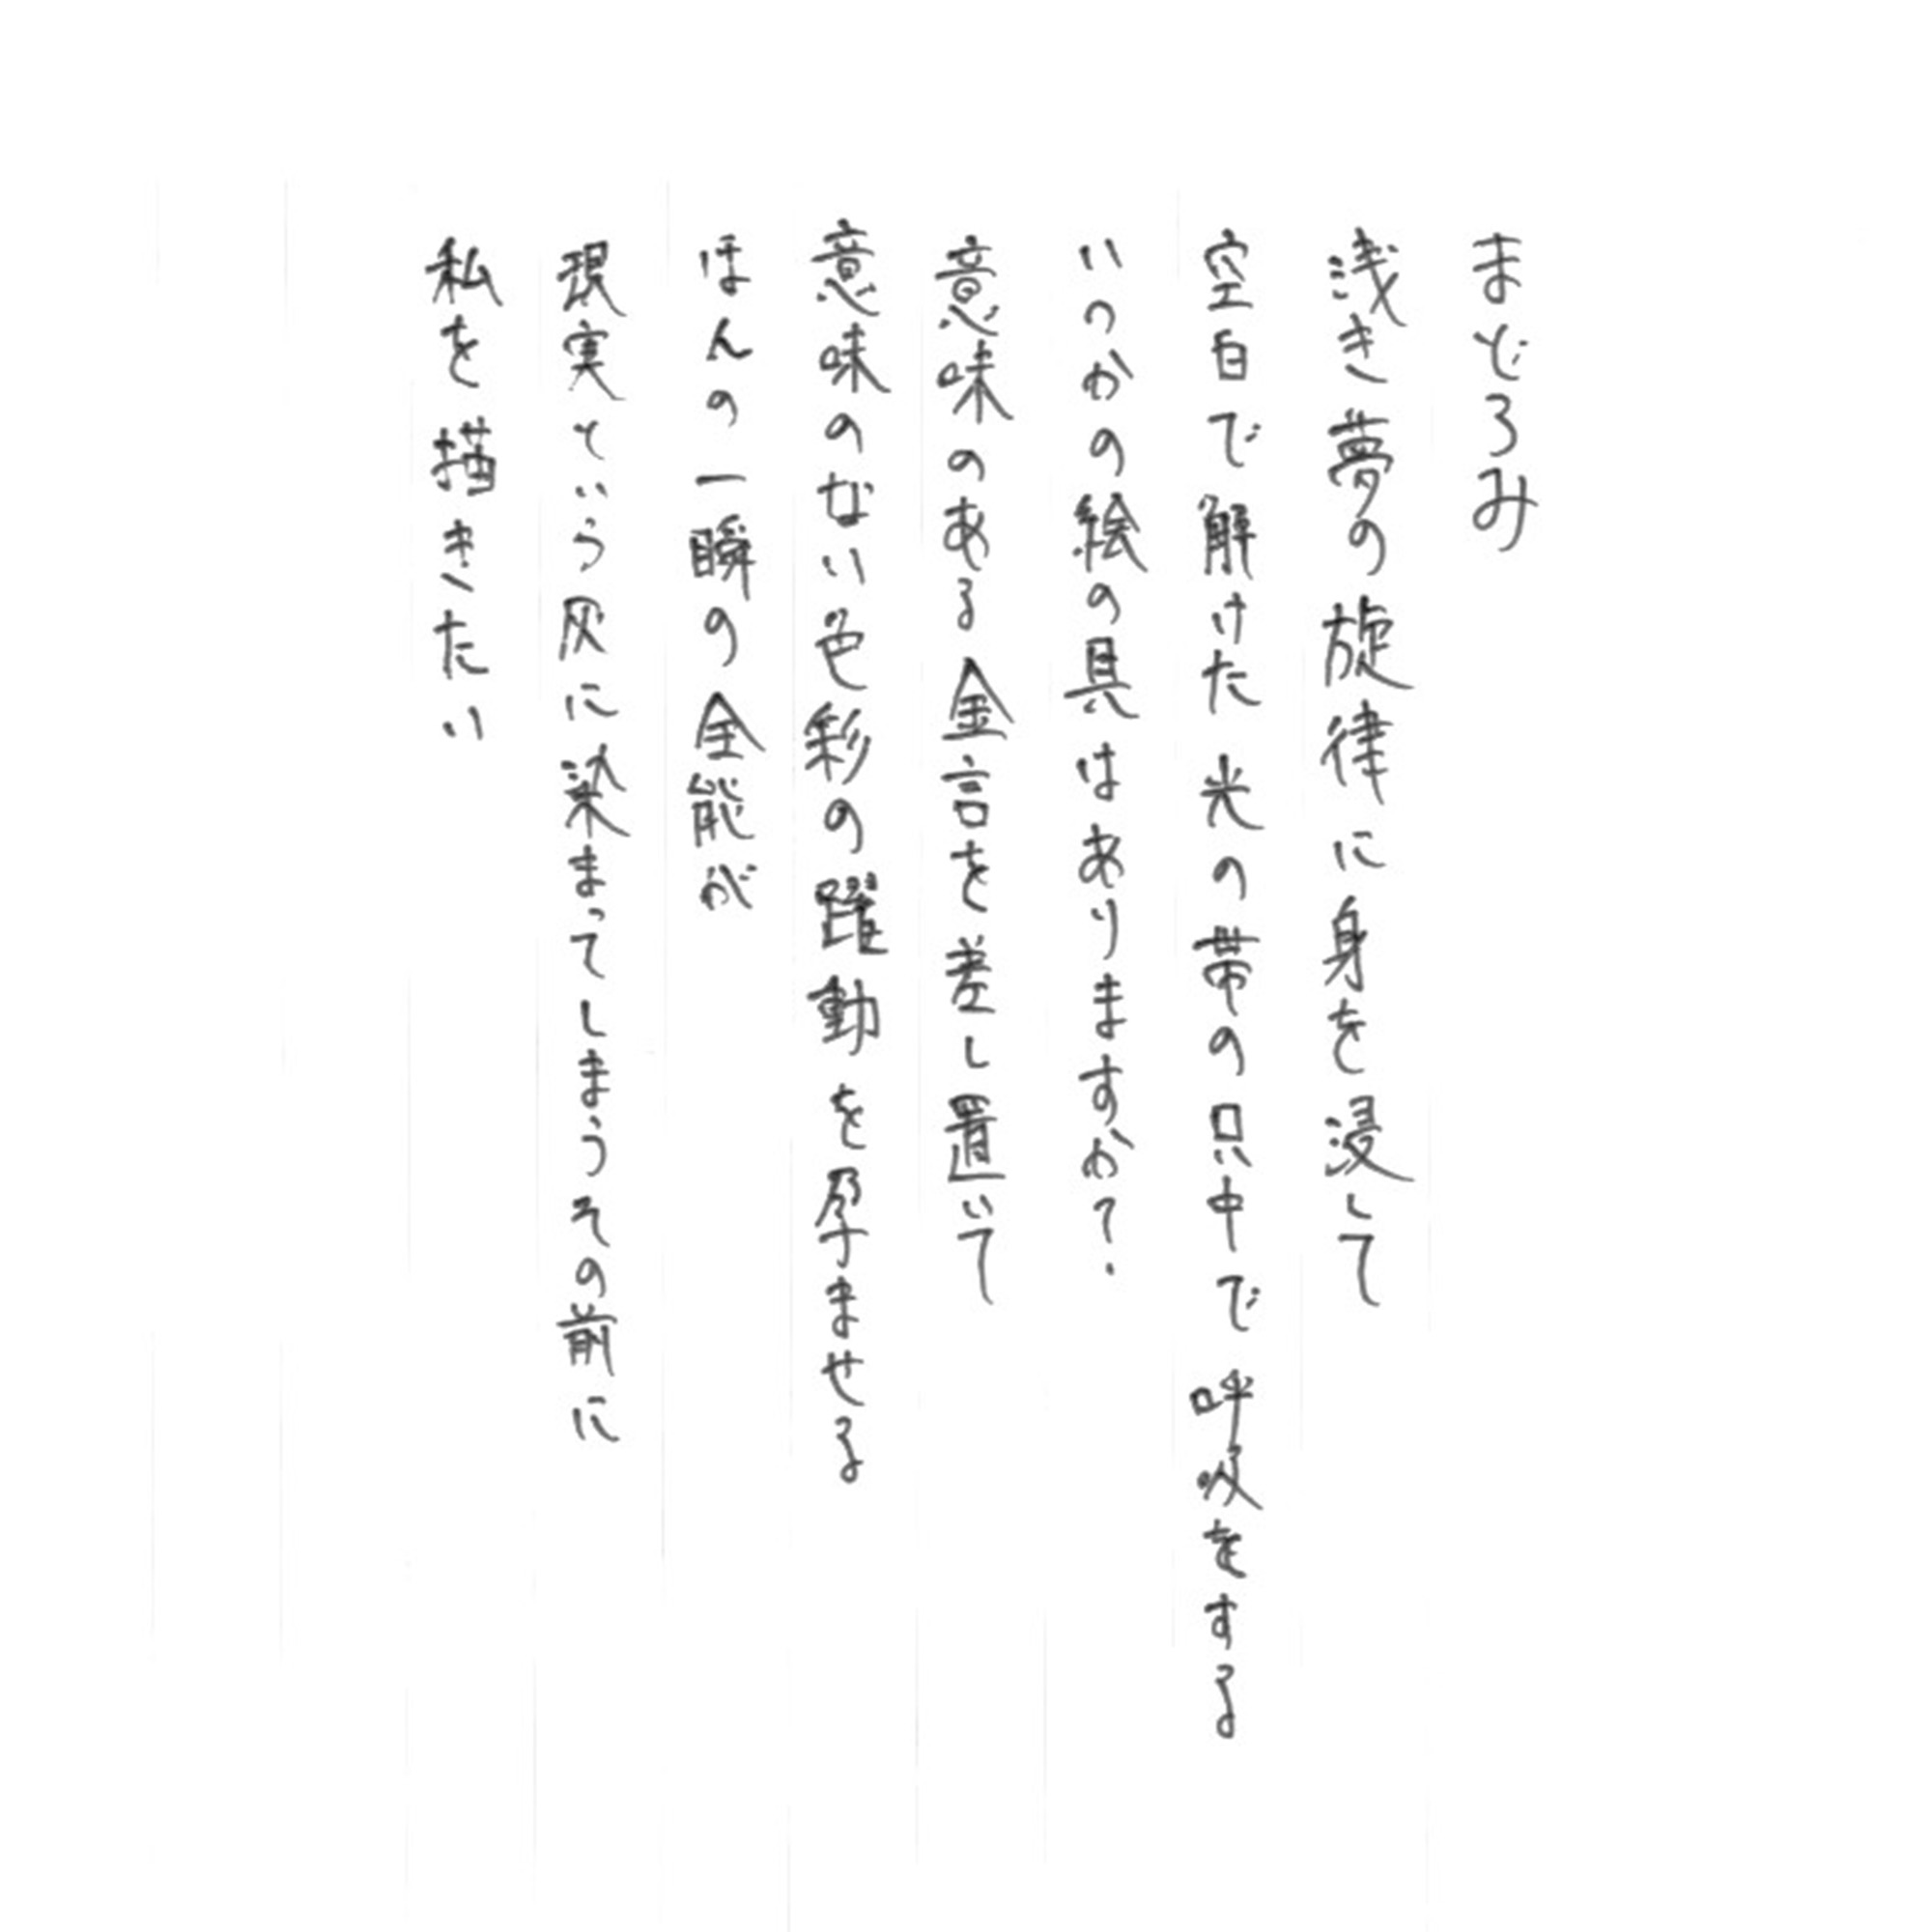 まどろみ
浅き夢の旋律に身を浸して
空白で解けた光の帯の只中で呼吸をする
いつかの絵の具はありますか?
意味のある金言を差し置いて
意味のない色彩の躍動を孕ませる
ほんの一瞬の全能が
現実という灰に染まってしまうその前に
私を描きたい